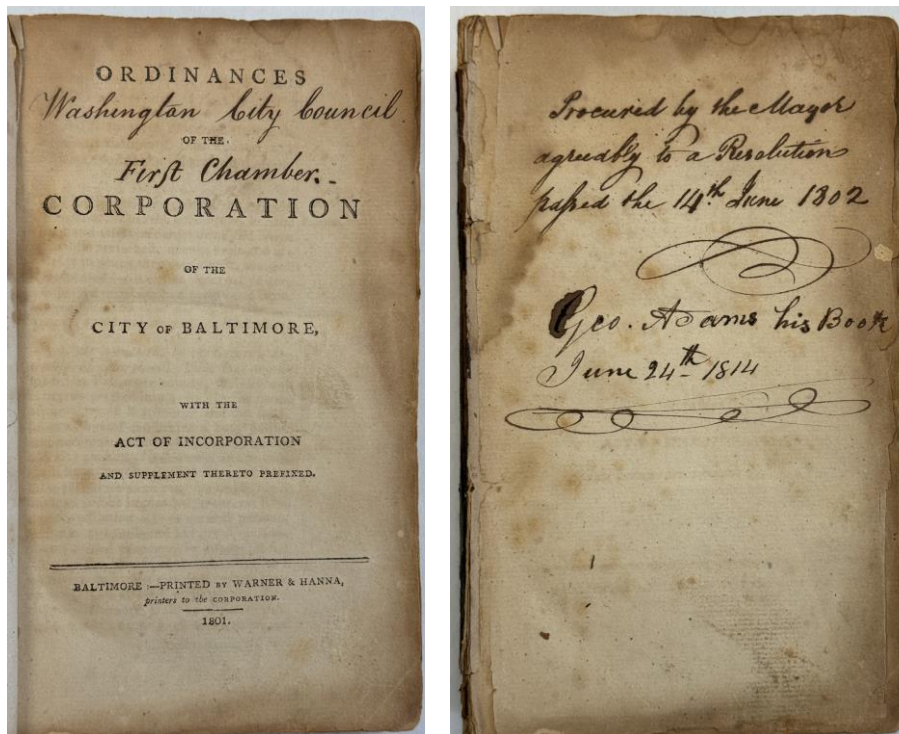 ORDINANCES
Washington City Council
OF THE
First Chamber.
CORPORATION
OF THE
CITY OF BALTIMORE,
WITH THE
ACT OF INCORPORATION
AND SUPPLEMENT THERETO PREFIXED.
BALTIMORE:—PRINTED BY WARNER & HANNA,
printers to the CORPORATION.
1801.
Procured by the Mayor
agreeably to a Resolution
passed the 14th June 1802
Geo. Adams his Book
June 24th 1814